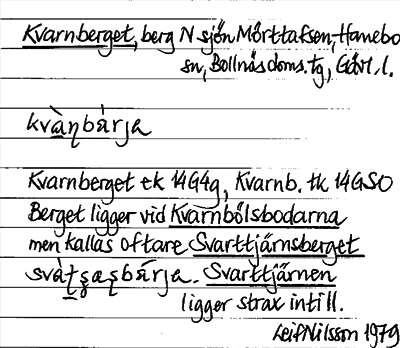 Kvarnberget, berg N sjön Mörttafsen, Hanebo
sn, Bollnäs doms. tg, Gävl. l.
kvàɳbárja
Kvarnberget ek 14G4g, Kvarnb. tk 14GSO
Berget ligger vid Kvarnbölsbodarna
men kallas oftare Svarttjärnsberget
svàʈʂəɳbä́rja. Svarttjärnen
ligger strax intill.
Leif Nilsson 1979